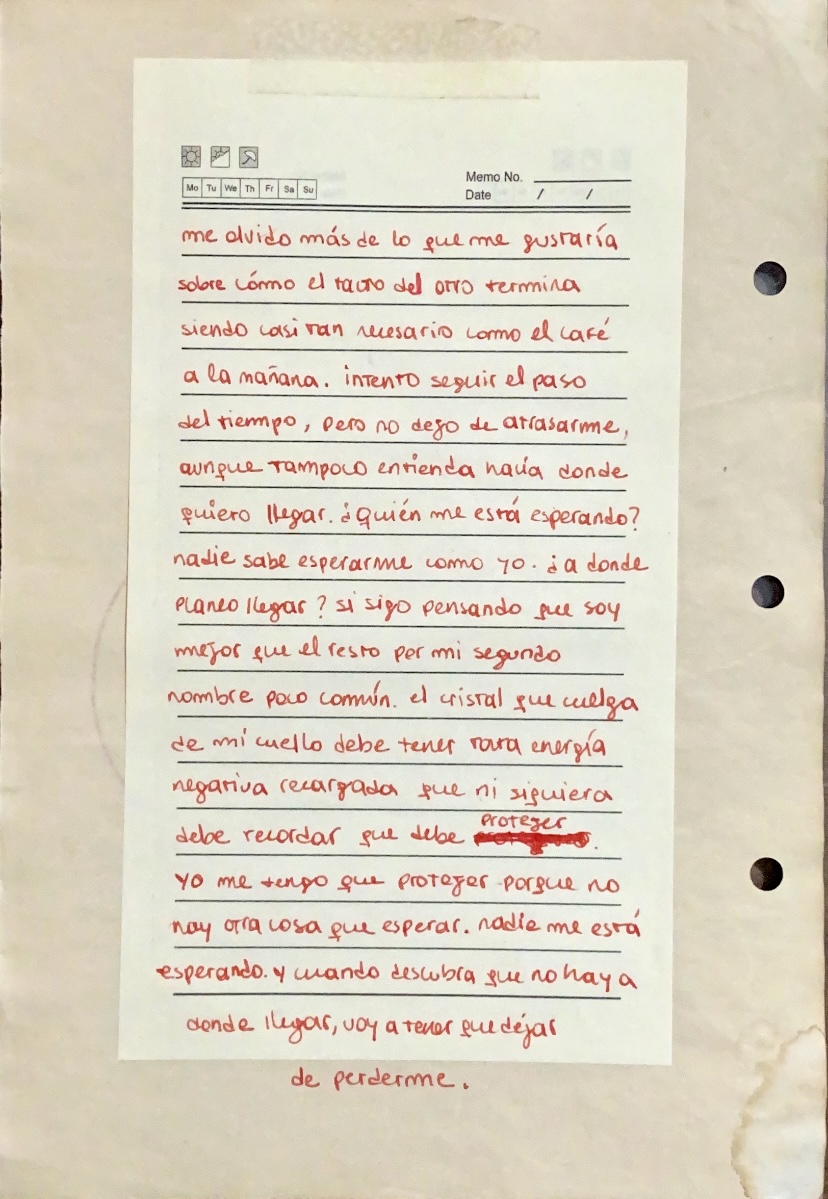 Mo Tu We Th Fr Sa Su
Memo No.
Date / /
me olvido más de lo que me gustaría
sobre cómo el tacto del otro termina
siendo casi tan necesario como el café
a la mañana. intento seguir el paso
del tiempo, pero no dejo de atrasarme,
aunque tampoco entienda hacia donde
quiero llegar. ¿Quién me está esperando?
nadie sabe esperarme como yo. ¿a donde
planeo llegar? si sigo pensando que soy
mejor que el resto por mi segundo
nombre poco común. el cristal que cuelga
de mi cuello debe tener tanta energía
negativa recargada que ni siquiera
debe recordar que debe proteger.
yo me tengo que proteger porque no
hay otra cosa que esperar. nadie me está
esperando. y cuando descubra que no hay a
donde llegar, voy a tener que dejar
de perderme.